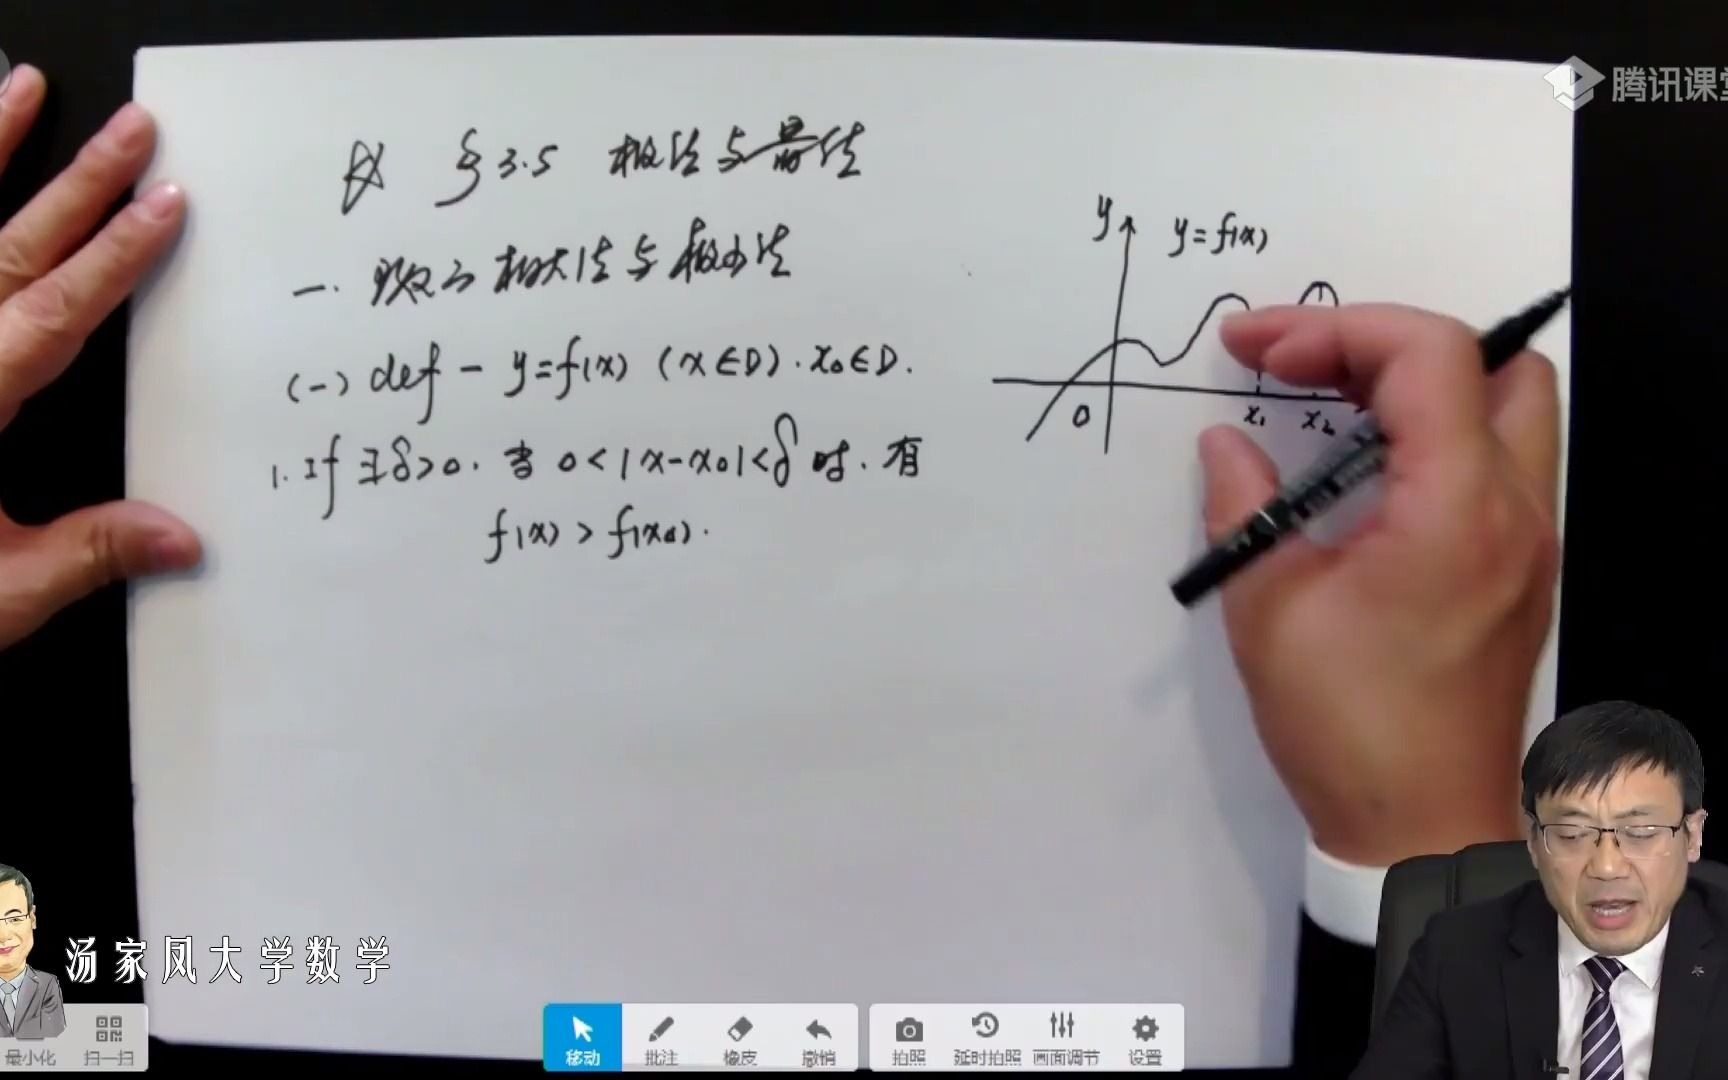 腾讯课堂
§3.5 极值与最值
一. 函数的极大值与极小值
(一) def — y=f(x) (x∈D). x₀∈D.
1. If ∃δ>0. 当 0<|x-x₀|<δ 时. 有
f(x) > f(x₀).
y
y=f(x)
0
x₁ x₂
汤家凤大学数学
最小化 扫一扫 移动 批注 橡皮 撤销 拍照 延时拍照 画面调节 设置